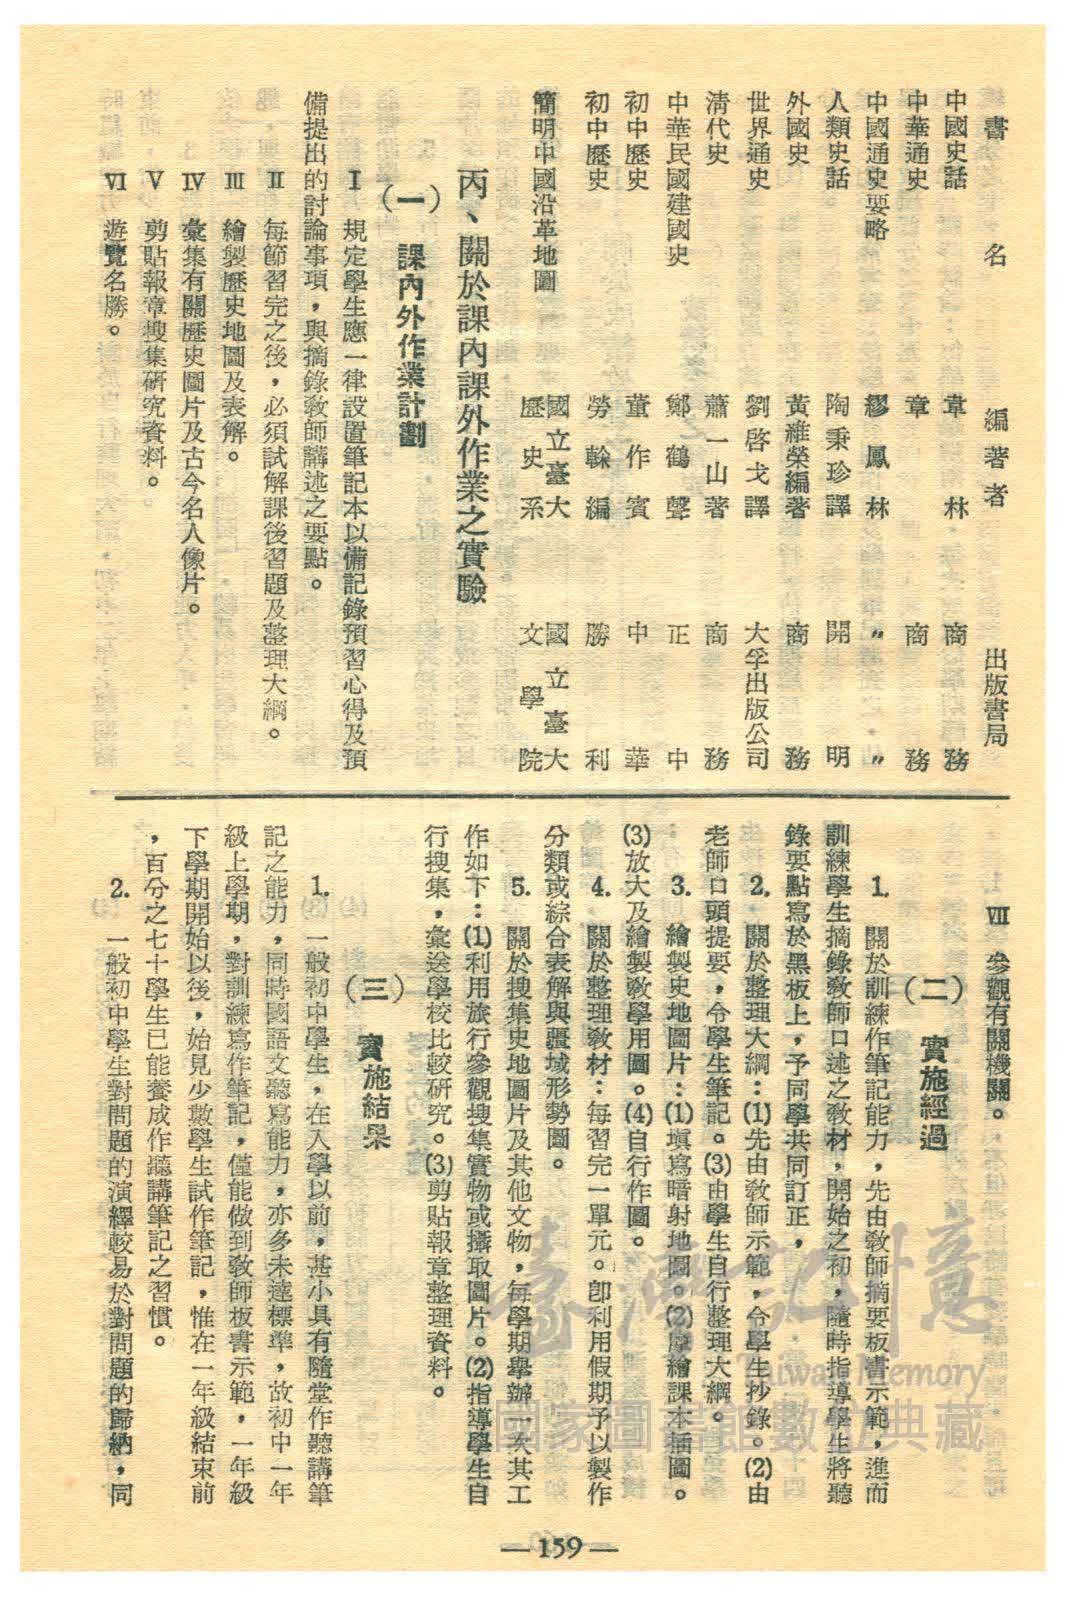 書名　編著者　出版書局
中國史話　韋林　商務
中華通史　章　商務
中國通史要略　繆鳳林　〃〃
人類史話　陶秉珍譯　開明
外國史　黃維榮編著　商務
世界通史　劉啓戈譯　大孚出版公司
清代史　蕭一山著　商務
中華民國建國史　鄭鶴聲　正中
初中歷史　董作賓　中華
初中歷史　勞榦編　勝利
簡明中國沿革地圖　國立臺大歷史系　國立臺大文學院
丙、關於課內課外作業之實驗
(一)　課內外作業計劃
Ⅰ　規定學生應一律設置筆記本以備記錄預習心得及預
備提出的討論事項，與摘錄敎師講述之要點。
Ⅱ　每節習完之後，必須試解課後習題及整理大綱。
Ⅲ　繪製歷史地圖及表解。
Ⅳ　彙集有關歷史圖片及古今名人像片。
Ⅴ　剪貼報章搜集研究資料。
Ⅵ　遊覽名勝。
Ⅶ　參觀有關機關。
(二)　實施經過
1.　關於訓練作筆記能力，先由敎師摘要板書示範，進而
訓練學生摘錄敎師口述之敎材，開始之初，隨時指導學生將聽
錄要點寫於黑板上，予同學共同訂正，
2.　關於整理大綱：(1)先由敎師示範，令學生抄錄。(2)由
老師口頭提要，令學生筆記。(3)由學生自行整理大綱。
3.　繪製史地圖片：(1)填寫暗射地圖。(2)摩繪課本插圖。
(3)放大及繪製敎學用圖。(4)自行作圖。
4.　關於整理敎材：每習完一單元。卽利用假期予以製作
分類或綜合表解與疆域形勢圖。
5.　關於搜集史地圖片及其他文物，每學期舉辦一次其工
作如下：(1)利用旅行參觀搜集實物或攝取圖片。(2)指導學生自
行搜集，彙送學校比較研究。(3)剪貼報章整理資料。
(三)　實施結果
1.　一般初中學生，在入學以前，甚小具有隨堂作聽講筆
記之能力，同時國語文聽寫能力，亦多未達標準，故初中一年
級上學期，對訓練寫作筆記，僅能做到敎師板書示範，一年級
下學期開始以後，始見少數學生試作筆記，惟在一年級結束前
，百分之七十學生已能養成作聽講筆記之習慣。
2.　一般初中學生對問題的演繹較易於對問題的歸納，同
臺灣記憶
Taiwan Memory
國家圖書館數位典藏
—159—